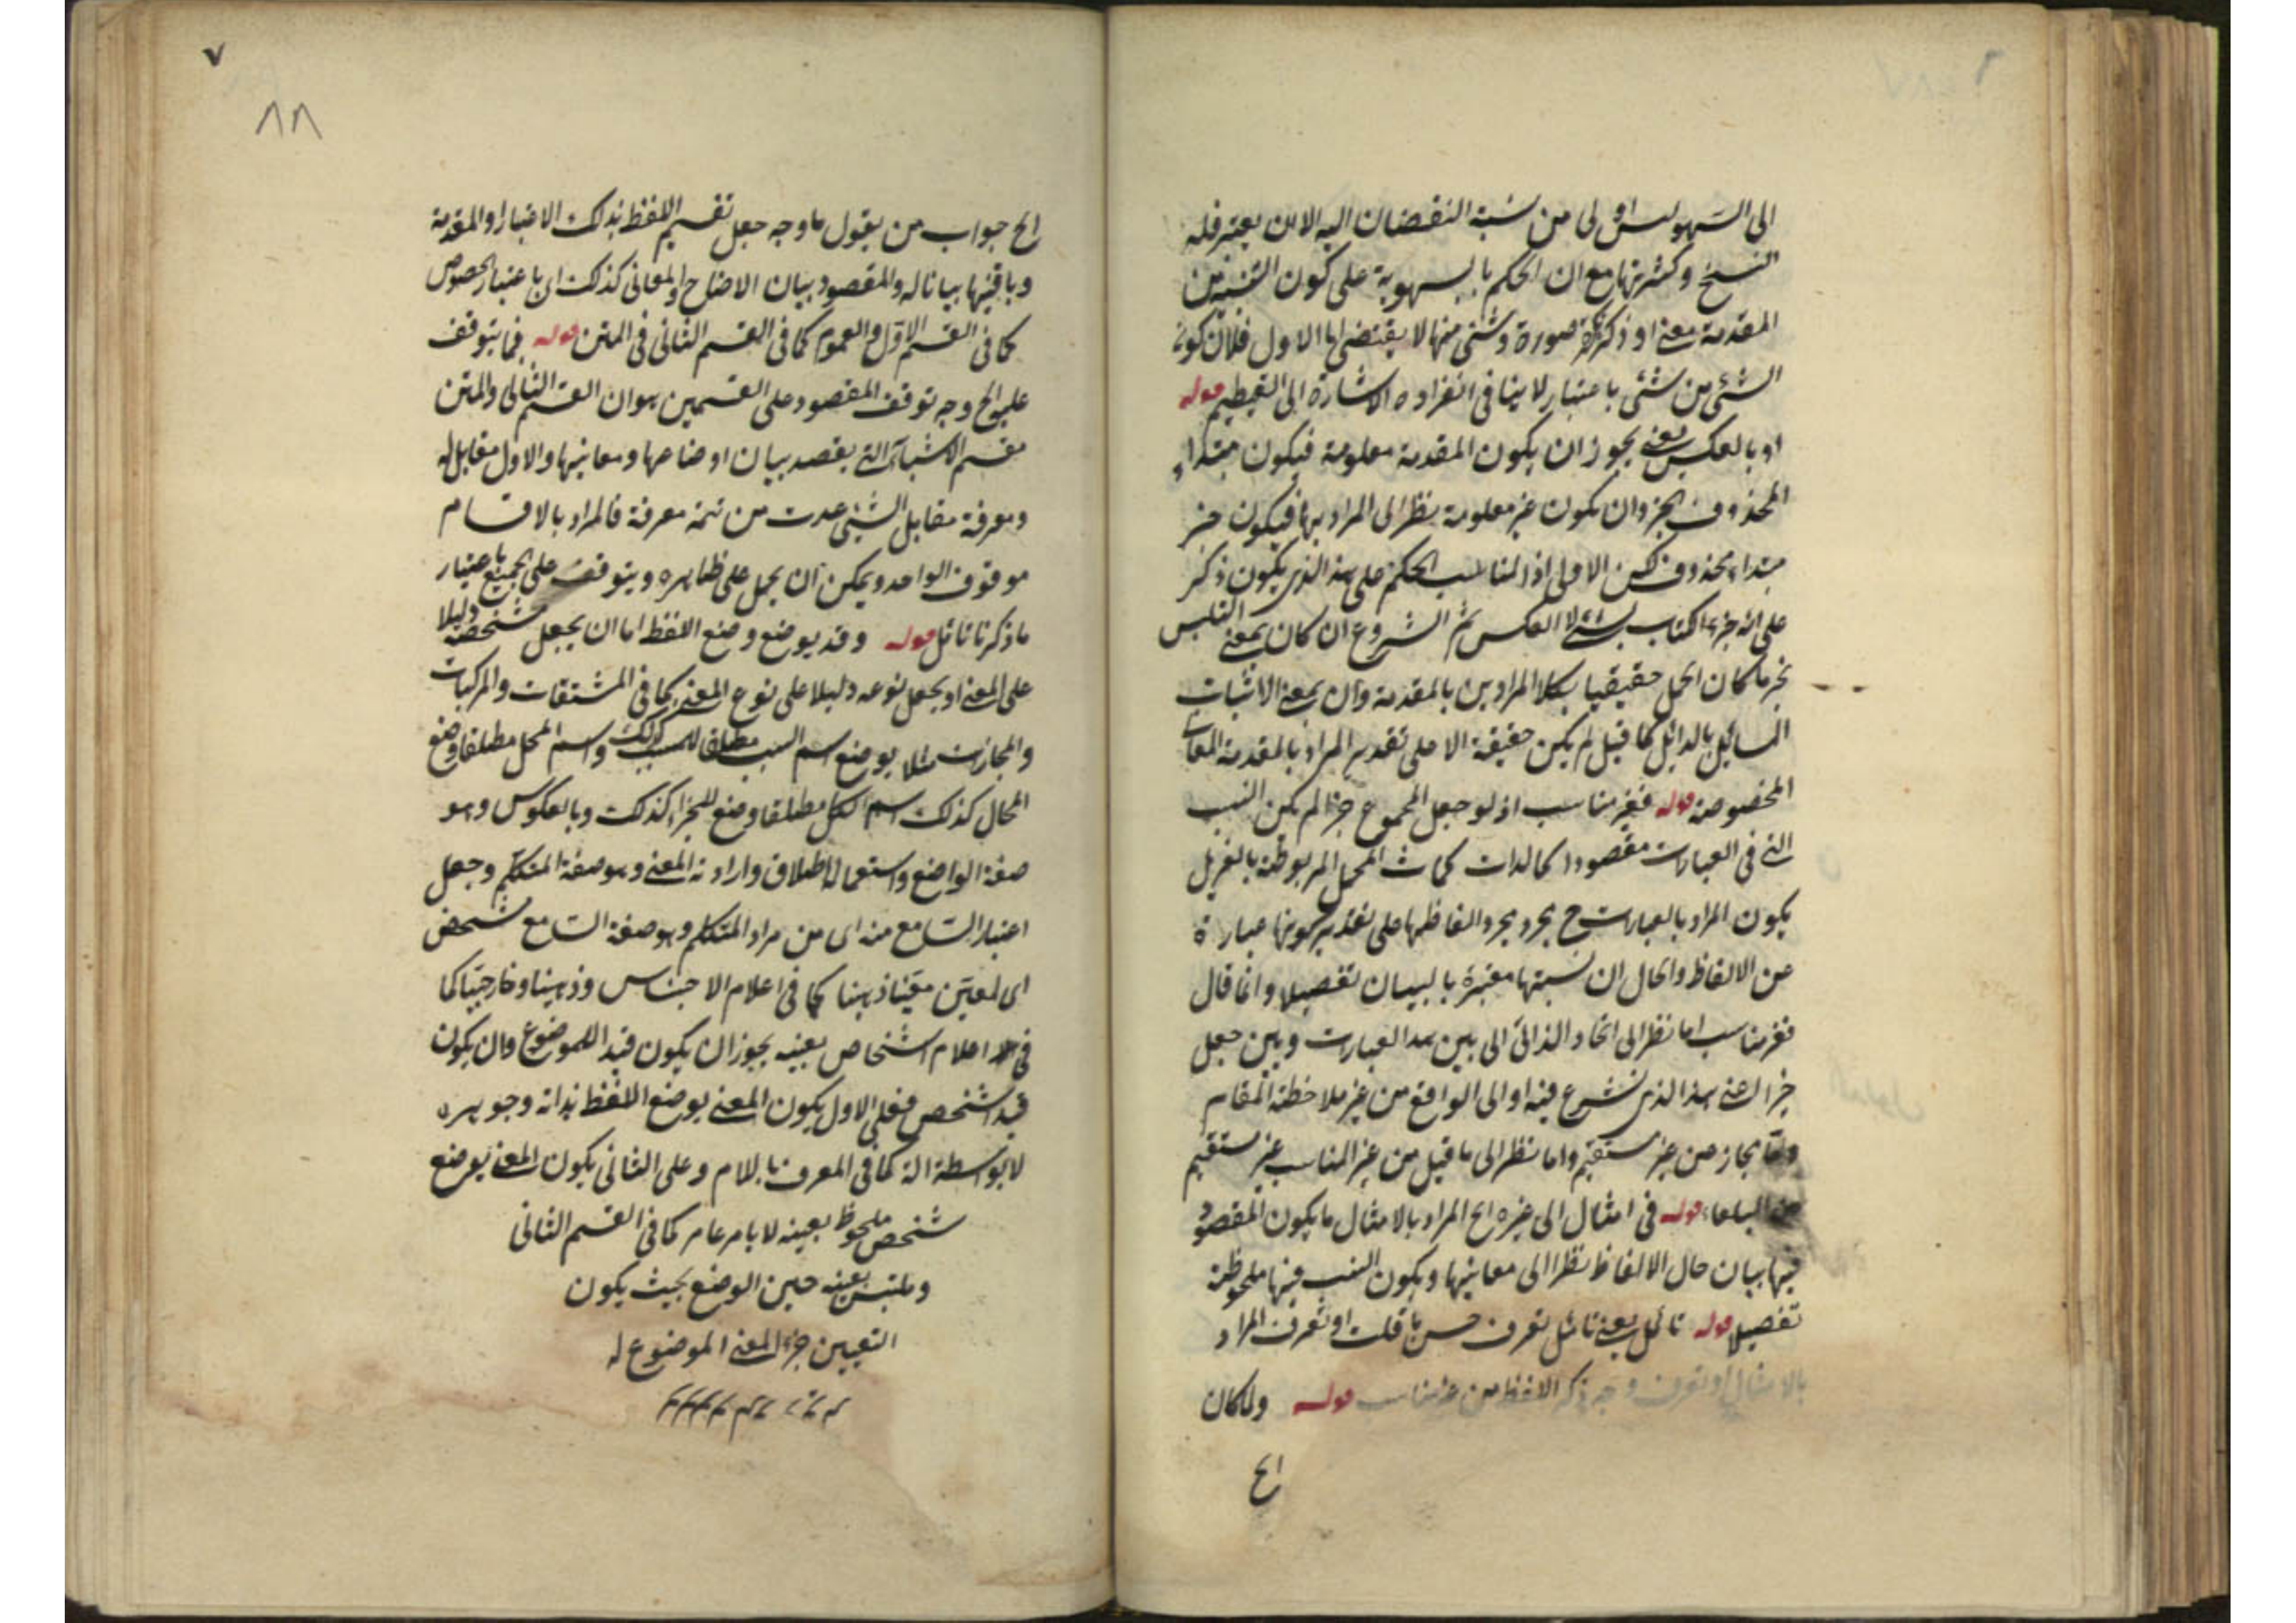 الى السهو اولى من نسبة النقصان اليه الا ان يعتبر قلة
النسخ وكثرتها مع ان الحكم بالسهوية على كون
المقدمة معنى او ذكر صورة وشئ منها لا يقتضى اما الاول فلان كون
الشئ من شئ باعتبار لا ينافى انفراده الاشارة الى التعظيم قوله
او بالعكس يعنى يجوز ان يكون المقدمة معلومة فيكون مبتداء
المحذوف الخبر وان يكون غير معلومة نظرا الى المراد بها فيكون خبر
مبتداء محذوف لكن الاولى اذ المناسب الحكم على هذا الذى يكون ذكر
على انه جزء الكتاب لا العكس ثم الشروع ان كان بمعنى التلبس
كان الحمل حقيقيا بكلا المرادين بالمقدمة وان بمعنى الاثبات
المسائل بالدلائل كما قيل لم يكن حقيقة الا على تقدير المراد بالمقدمة المعانى
المخصوصة قوله فغير مناسب اذ لو جعل المجموع جزأ لم يكن النسب
التى فى العبارات مقصودا
يكون المراد بالعبارات ح مجرد الفاظها على تقدير كونها عبارة
عن الالفاظ والحال ان نسبتها معتبرة بالبيان تفصيلا وانما قال
فغير مناسب اما نظرا الى اتحاد الذاتى بين هذه العبارات وبين جعل
جزأ لمعنى هذا الذى نشرع فيه او الى الواقع من غير ملاحظة المقام
من غير مستقيم واما نظرا الى ما قيل من غير المناسب غير مستقيم
من البلغاء قوله فى امثال الى غيره الخ المراد بالامثال ما يكون المقصود
فيها بيان حال الالفاظ نظرا الى معانيها ويكون النسب فيها ملحوظة
تفصيلا قوله تامل يعنى تامل تعرف حسن ما قلت او تعرف المراد
بالامثال او تعرف وجه ذكر اللفظ من غير مناسب قوله ولما كان
الخ
٧
٨٨
الخ جواب من يقول ما وجه جعل تقسيم اللفظ بذلك الاعتبار او المقدمة
وباقيها بيانا له والمقصود بيان الاوضاع والمعانى كذلك اى باعتبار الخصوص
كما فى القسم الاول والعموم كما فى القسم الثانى فى المتن قوله فما يتوقف
عليه الخ وجه توقف المقصود على القسمين هو ان القسم الثانى والمتن
مقسم الاشياء التى يقصد بيان اوضاعها ومعانيها والاول مقابل له
ومعرفة مقابل الشئ عدت من تتمة معرفة فالمراد بالاقسام
موقوف الواحد ويمكن ان يحمل على ظاهره ويتوقف على الجميع باعتبار
ما ذكرنا تامل قوله وقد يوضع وضع اللفظ اما ان يجعل شخصه دليلا
على المعنى او يجعل نوعه دليلا على نوع المعنى كما فى المشتقات والمركبات
والمجازات مثلا يوضع اسم السبب مطلقا للمسبب كذلك واسم المحل مطلقا وضع
الحال كذلك اسم الكل مطلقا وضع للجزء كذلك وبالعكوس وهو
صفة الواضع واستعماله اطلاق وارادته المعنى وهو صفة المتكلم وجعل
اعتبار السامع منه اى من مراد المتكلم وهو صفة السامع شخص
اى لمعين معينا ذهنا كما فى اعلام الاجناس وذهينا وخارجيا كما
فى اعلام اشخاص بعينه يجوز ان يكون قيد اللموضوع وان يكون
قيد الشخص فعلى الاول يكون المعنى يوضع اللفظ بذاته وجوهره
لا بواسطة آلة كما فى المعرف باللام وعلى الثانى يكون المعنى يوضع
شخص ملحوظ بعينه لا بامر عام كما فى القسم الثانى
وملتبس بعينه حين الوضع بحيث يكون
التعيين جزء المعنى الموضوع له